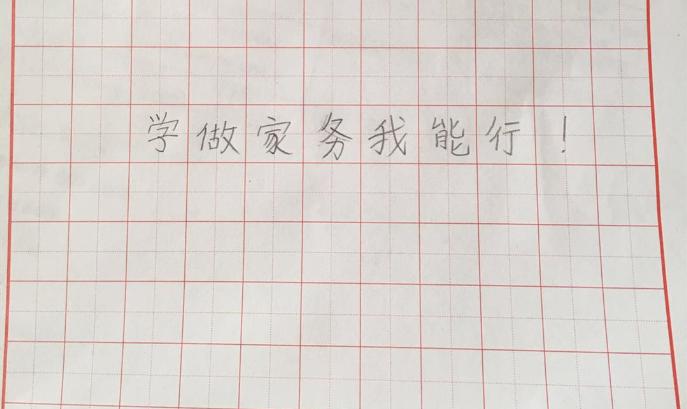 学做家务我能行！